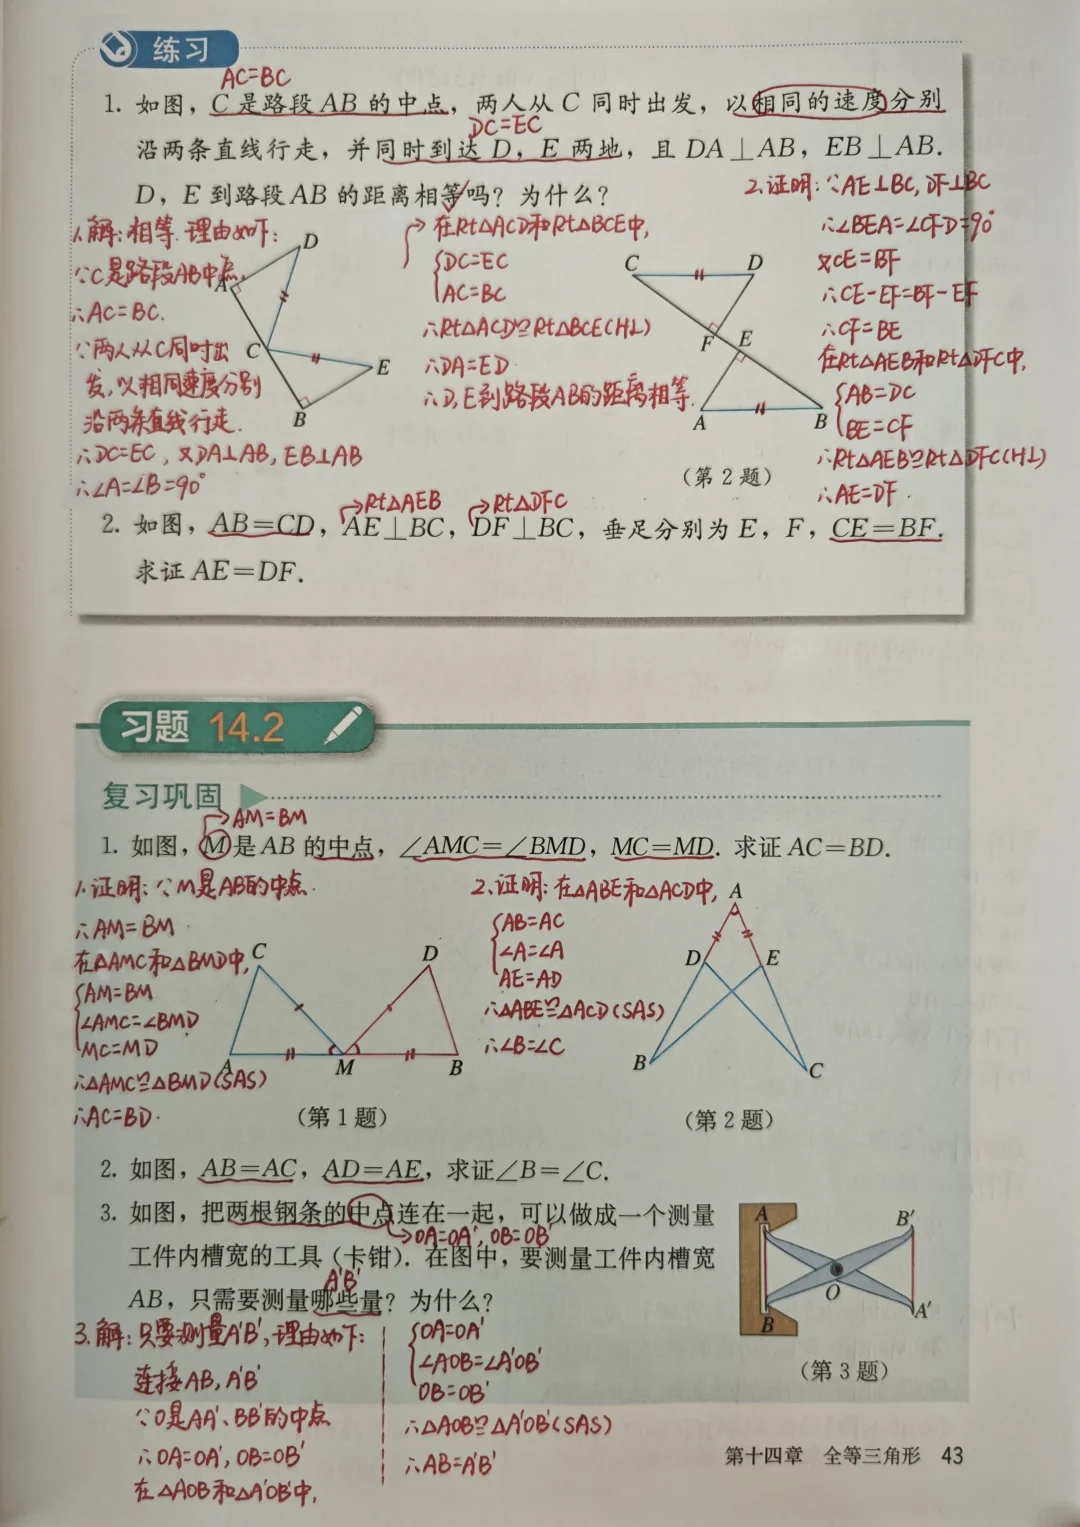 练习
AC=BC
1. 如图，C 是路段 AB 的中点，两人从 C 同时出发，以相同的速度分别
DC=EC
沿两条直线行走，并同时到达 D，E 两地，且 DA⊥AB，EB⊥AB.
D，E 到路段 AB 的距离相等吗？为什么？
1.解：相等.理由如下：
∵C是路段AB中点,
∴AC=BC.
∵两人从C同时出
发,以相同速度分别
沿两条直线行走.
∴DC=EC,又DA⊥AB,EB⊥AB
∴∠A=∠B=90°
在Rt△ACD和Rt△BCE中,
DC=EC
AC=BC
∴Rt△ACD≌Rt△BCE(HL)
∴DA=ED
∴D,E到路段AB的距离相等.
D
A
C
E
B
C
D
F
E
A
B
(第 2 题)
2.证明：∵AE⊥BC,DF⊥BC
∴∠BEA=∠CFD=90°
又CE=BF
∴CE-EF=BF-EF
∴CF=BE
在Rt△AEB和Rt△DFC中,
AB=DC
BE=CF
∴Rt△AEB≌Rt△DFC(HL)
∴AE=DF.
Rt△AEB Rt△DFC
2. 如图，AB=CD，AE⊥BC，DF⊥BC，垂足分别为 E，F，CE=BF.
求证 AE=DF.
习题 14.2
复习巩固
AM=BM
1. 如图，M 是 AB 的中点，∠AMC=∠BMD，MC=MD. 求证 AC=BD.
1.证明：∵M是AB的中点.
∴AM=BM
在△AMC和△BMD中,
AM=BM
∠AMC=∠BMD
MC=MD
∴△AMC≌△BMD(SAS)
∴AC=BD.
C
D
A
M
B
(第 1 题)
2.证明：在△ABE和△ACD中,
AB=AC
∠A=∠A
AE=AD
∴△ABE≌△ACD(SAS)
∴∠B=∠C
A
D
E
B
C
(第 2 题)
2. 如图，AB=AC，AD=AE，求证∠B=∠C.
3. 如图，把两根钢条的中点连在一起，可以做成一个测量
OA=OA',OB=OB'
工件内槽宽的工具（卡钳）. 在图中，要测量工件内槽宽
A'B'
AB，只需要测量哪些量？为什么？
A
B'
O
B
A'
(第 3 题)
3.解：只要测量A'B',理由如下：
连接AB,A'B'
∵O是AA'、BB'的中点
∴OA=OA',OB=OB'
在△AOB和△A'OB'中,
OA=OA'
∠AOB=∠A'OB'
OB=OB'
∴△AOB≌△A'OB'(SAS)
∴AB=A'B'
第十四章 全等三角形 43